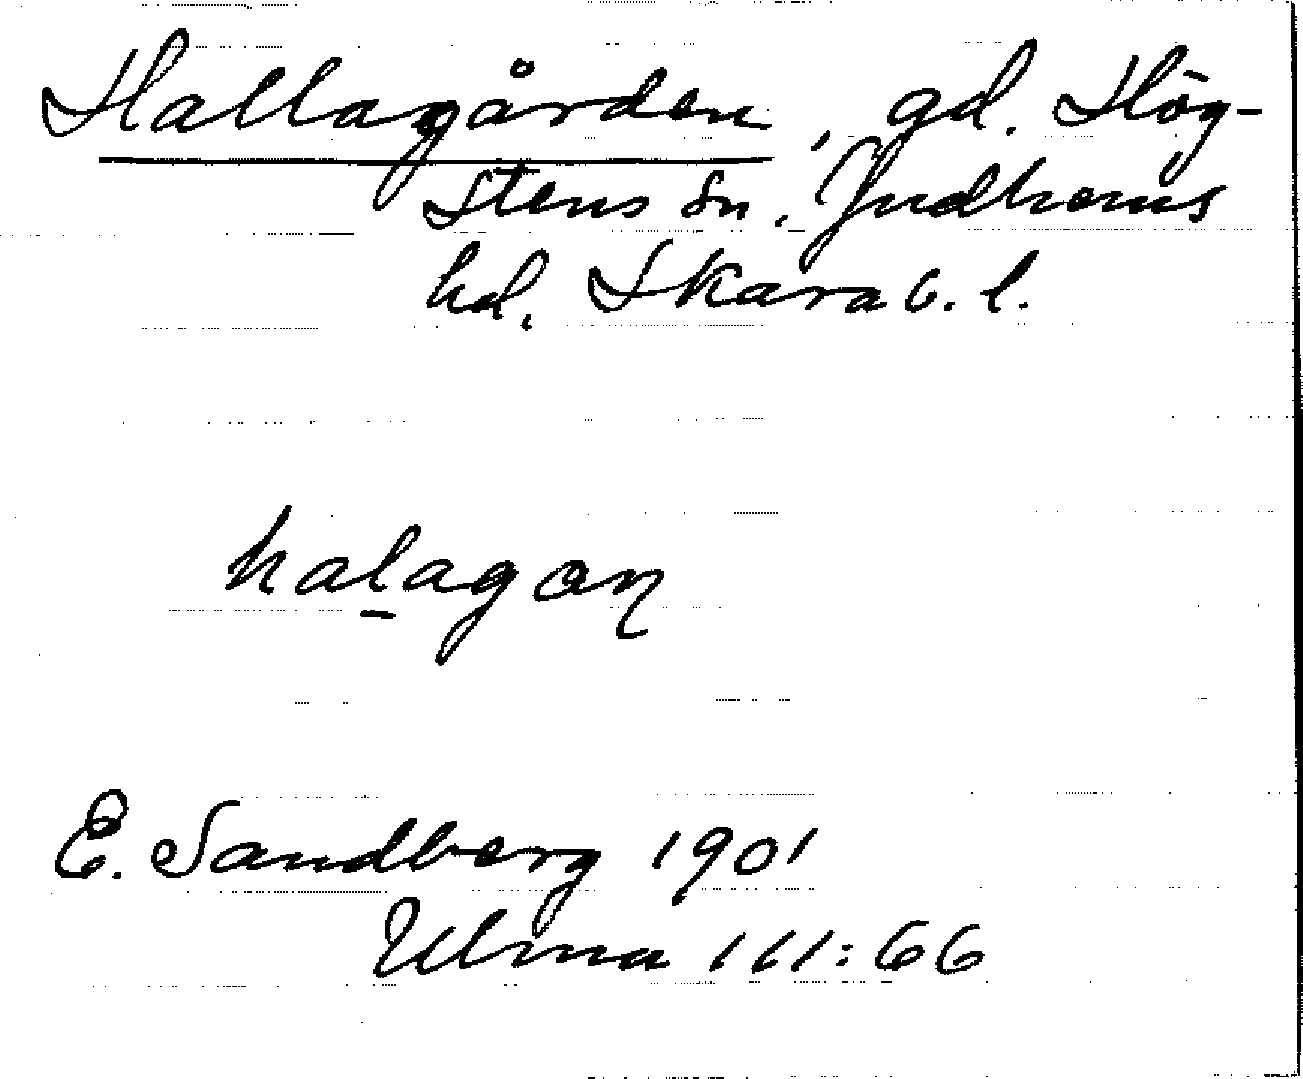 Hallagården, gd. Hög-
stens sn, Gudhems
hd, Skarab. l.
hal̲agaɳ
E. Sandberg 1901
Ulma 111:66